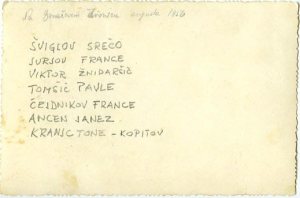 avgusta 1956
ŠVIGLOV SREČO
JURJOV FRANCE
VIKTOR ŽNIDARŠIČ
TOMŠIČ PAVLE
ČEJDNIKOV FRANCE
ANCEN JANEZ
KRANJC TONE - KOPITOV